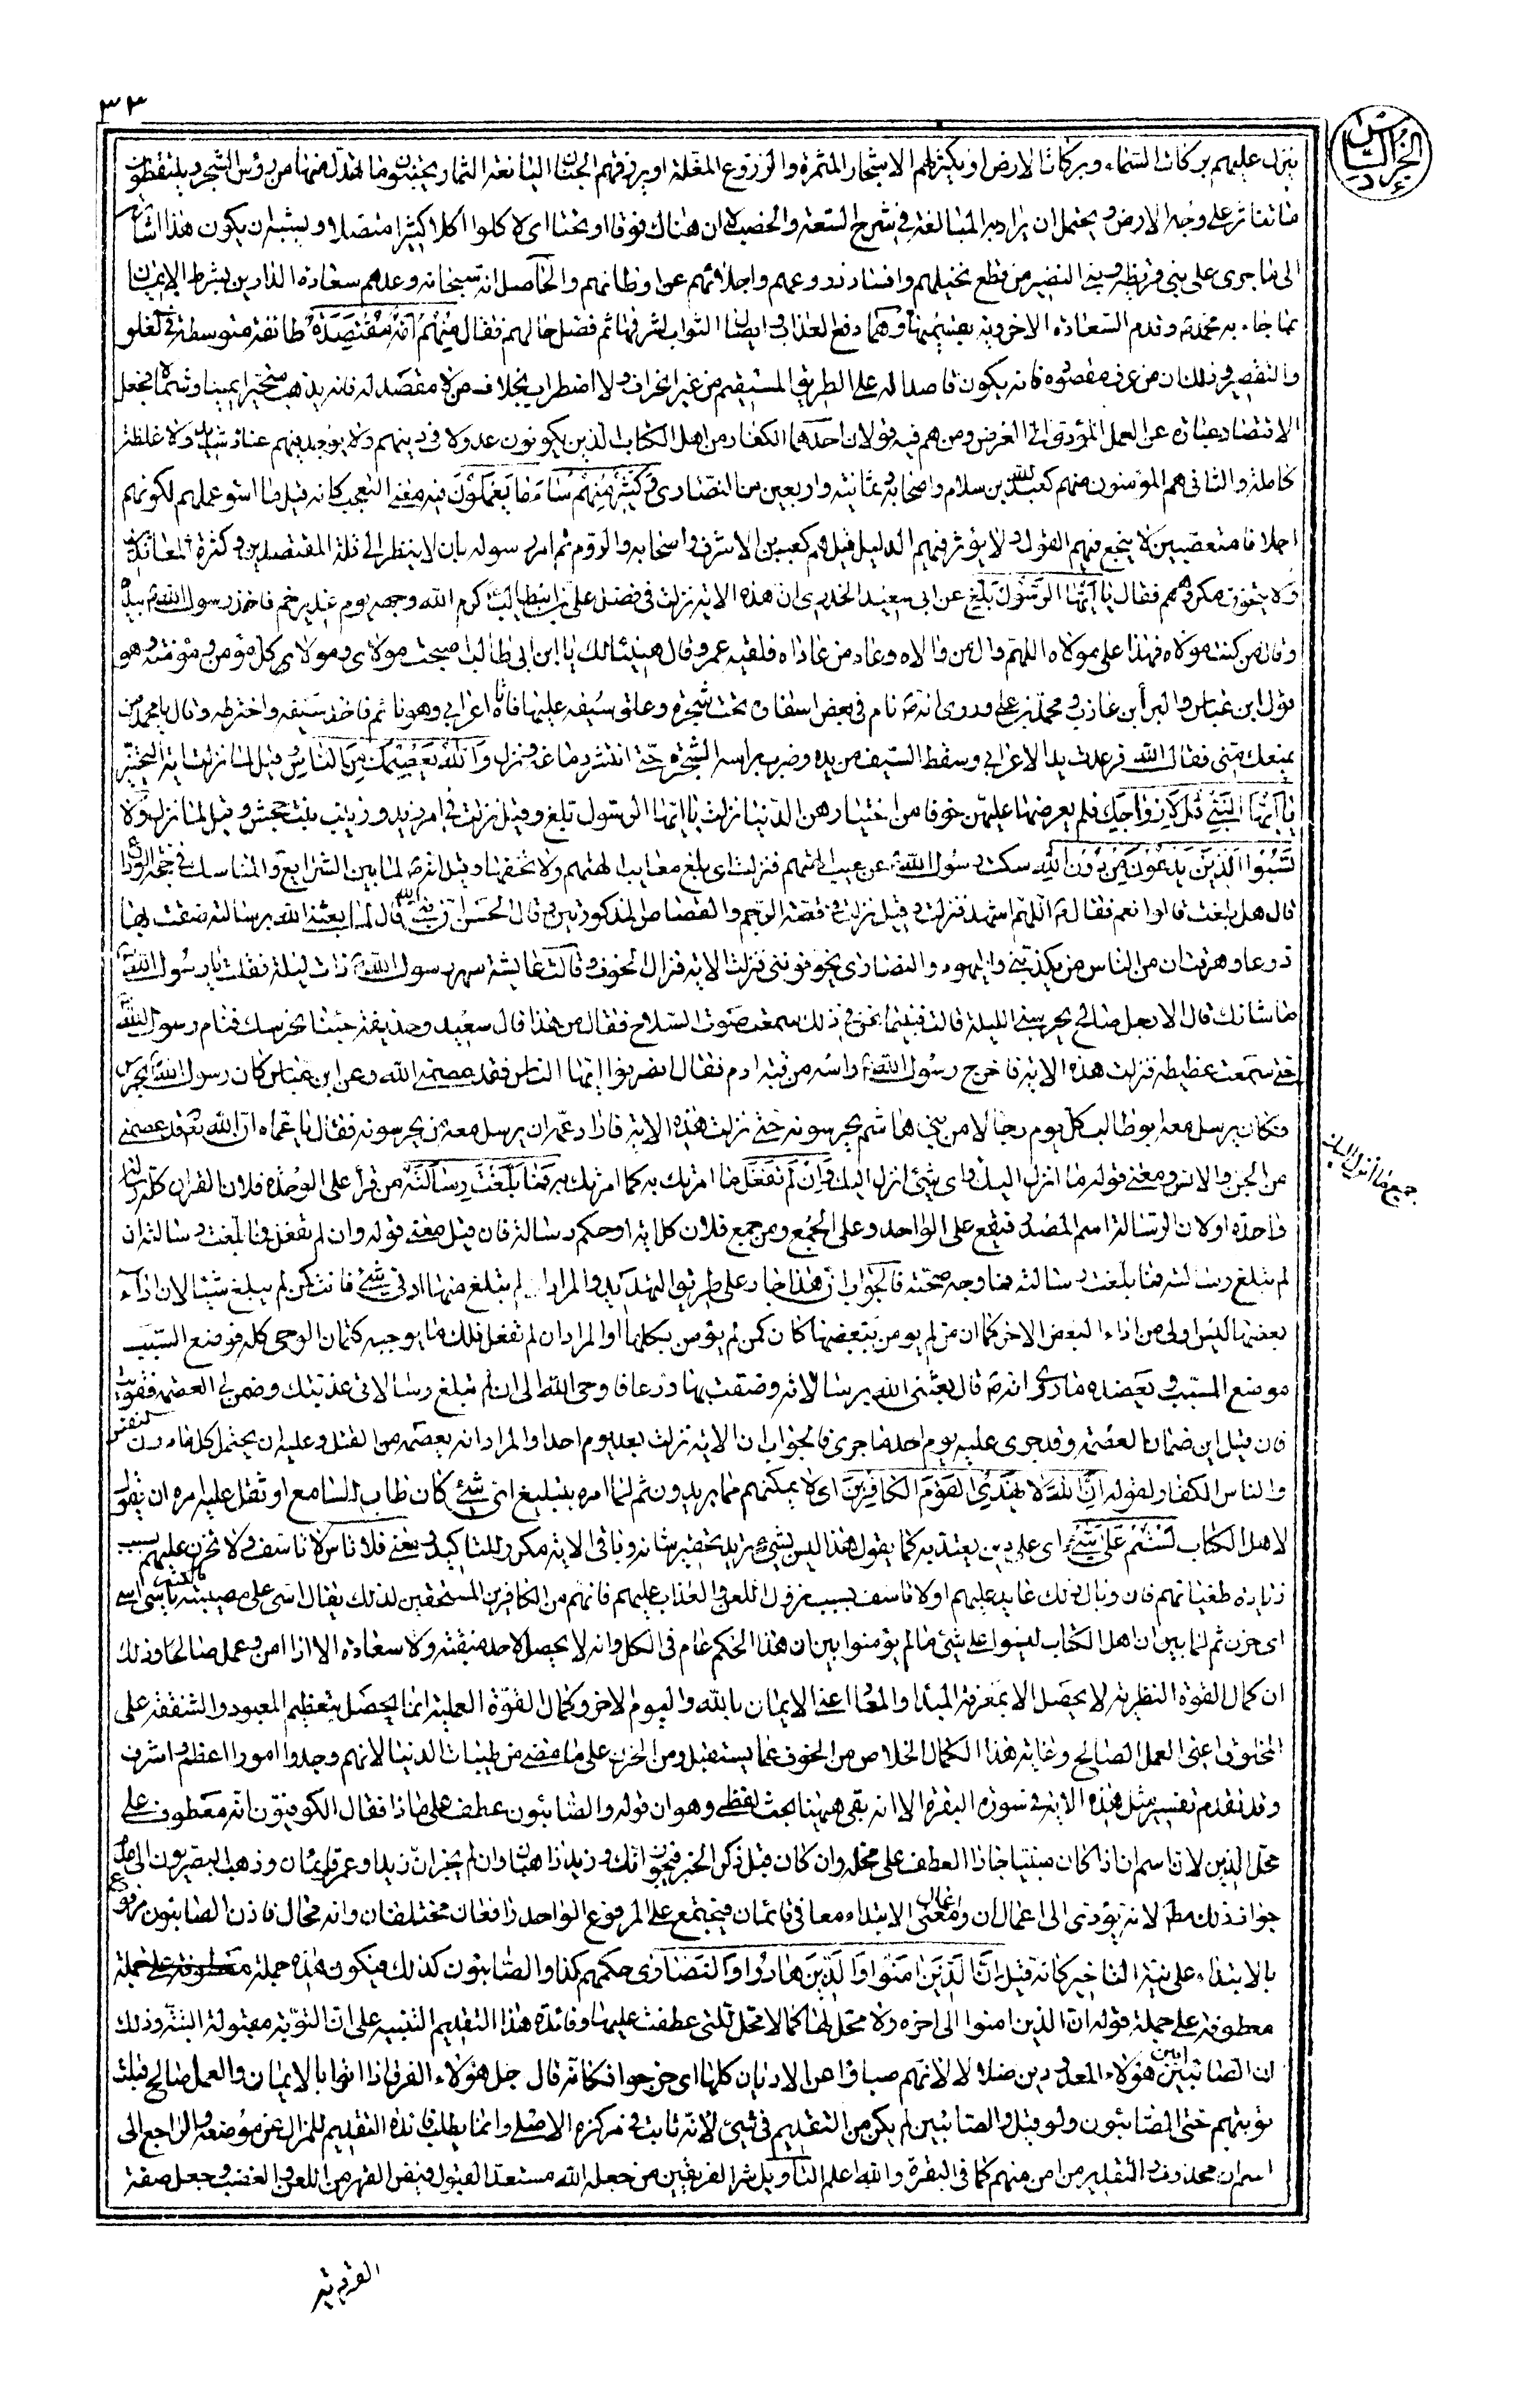 ٣٣
الجزء السادس
ينزل عليهم بركات السماء وبركات الارض او يكثر لهم الاشجار المثمرة والزروع المغلة او يرزقهم الجنان اليانعة الثمار يجتنون ما تهدل منها من رؤس الشجر ويلتقطون
ما تناثر على وجه الارض ويحتمل ان يراد به المبالغة في شرح السعة والخصب لا ان هناك فوقا او تحتا اى لاكلوا اكلا كثيرا متصلا ويشبه ان يكون هذا اشارة
الى ما جرى على بنى قريظة وبنى النضير من قطع نخيلهم وافساد زروعهم واجلائهم عن اوطانهم والحاصل انه سبحانه وعدهم سعادة الدارين بشرط الايمان
بما جاء به محمد ص وقدم السعادة الاخروية بقسميها وهما دفع العذاب وايصال الثواب لشرفها ثم فصل حالهم فقال منهم امة مقتصدة طائفة متوسطة في الغلو
والتقصير وذلك ان من عرف مقصوده فانه يكون قاصدا له على الطريق المستقيم من غير انحراف ولا اضطراب بخلاف من لا مقصد له فانه يذهب متحيرا يمينا وشمالا فجعل
الاقتصاد عبارة عن العمل المؤدى الى الغرض ومن هم فيه قولان احدهما الكفار من اهل الكتاب الذين يكونون عدولا في دينهم ولا يوجد فيهم عناد شديد ولا غلظة
كاملة والثانى هم المؤمنون منهم كعبد الله بن سلام واصحابه وثمانية واربعين من النصارى وكثير منهم ساء ما يعملون فيه معنى التعجب كانه قيل ما اسوء عملهم لكونهم
اجلافا متعصبين لا ينجع فيهم القول ولا يؤثر فيهم الدليل قيل هم كعب بن الاشرف واصحابه والروم ثم امر رسوله بان لا ينظر الى قلة المقتصدين وكثرة المعاندين
ولا يتخوف مكروههم فقال يا ايها الرسول بلغ عن ابى سعيد الخدرى ان هذه الاية نزلت في فضل على بن ابيطالب كرم الله وجهه يوم غدير خم فاخذ رسول الله ص بيده
وقال من كنت مولاه فهذا على مولاه اللهم وال من والاه وعاد من عاداه فلقيه عمر وقال هنيئا لك يا ابن ابى طالب اصبحت مولاى ومولى كل مؤمن ومؤمنة وهو
قول ابن عباس والبرأ بن عازب ومحمد بن على وروى انه ص نام في بعض اسفاره تحت شجرة وعلق سيفه عليها فاتاه اعرابى وهو نائم فاخذ سيفه واخترطه وقال يا محمد من
يمنعك منى فقال الله فرعدت يد الاعرابى وسقط السيف من يده وضرب براسه الشجرة حتى انتثر دماغه ونزل والله يعصمك من الناس وقيل لما نزلت اية التخيير
يا ايها النبى قل لازواجك فلم يعرضها عليهن خوفا من اختيارهن الدنيا نزلت يا ايها الرسول بلغ وقيل نزلت في امر زيد وزينب بنت جحش وقيل لما نزل ولا
تسبوا الذين يدعون من دون الله سكت رسول الله ص عن عيب الهتهم فنزلت اى بلغ معايب الهتهم ولا تخفها وقيل انه ص لما بين الشرايع والمناسك في حجة الوداع
قال هل بلغت قالوا نعم فقال ص اللهم اشهد فنزلت وقيل نزلت في قصة الرجم والقصاص المذكورتين وقال الحسن ان نبى الله قال لما بعثنى الله برسالته ضقت بها
ذرعا وعرفت ان من الناس من يكذبنى واليهود والنصارى يخوفوننى فنزلت الاية فزال الخوف وقالت عائشة سهر رسول الله ص ذات ليلة فقلت يا رسول الله
ما شانك قال الا رجل صالح يحرسنى الليلة قالت فبينما نحن في ذلك سمعت صوت السلاح فقال من هذا قال سعد وحذيفة جئنا نحرسك فنام رسول الله
حتى سمعت غطيطه فنزلت هذه الاية فاخرج رسول الله ص راسه من قبة ادم فقال انصرفوا ايها الناس فقد عصمنى الله وعن ابن عباس كان رسول الله يحرس
فكان يرسل معه ابو طالب كل يوم رجالا من بنى هاشم يحرسونه حتى نزلت هذه الاية فاراد عمه ان يرسل معه من يحرسونه فقال يا عماه ان الله تع قد عصمنى
من الجن والانس ومعنى قوله ما انزل اليك اى شئ انزل اليك وان لم تفعل ما امرتك به كما امرتك به فما بلغت رسالته من قرأ على الوحدة فلان القران كله رسالة
جميع ما انزل اليك
واحدة او لان الرسالة اسم المصدر فيقع على الواحد وعلى الجمع ومن جمع فلان كل اية او حكم رسالة فان قيل معنى قوله وان لم تفعل فما بلغت رسالته ان
لم تبلغ رسالته فما بلغت رسالته فما وجه صحته فالجواب ان هذا جار على طريق التهديد والمراد ان لم تبلغ منها ادنى شئ فانت كمن لم يبلغ شيئا لان اداء
بعضها ليس اولى من اداء البعض الاخر كما ان من لم يؤمن ببعضها كان كمن لم يؤمن بكلها او المراد ان لم تفعل فلك ما يوجبه كتمان الوحى كله فوضع السبب
موضع المسبب ويعضده ما روى انه ص قال بعثنى الله برسالاته وضقت بها ذرعا فاوحى الله الى ان لم تبلغ رسالاتى عذبتك وضمن لى العصمة فقويت
فان قيل اين ضمان العصمة وقد جرى عليه يوم احد ما جرى فالجواب ان الاية نزلت بعد يوم احد او المراد انه يعصمه من القتل وعليه ان يحتمل كل ما دون النفس
والناس الكفار لقوله ان الله لا يهدى القوم الكافرين اى لا يمكنهم مما يريدون ثم لما امره بتبليغ اى شئ كان طاب للسامع او ثقل عليه امره ان يقول
لاهل الكتاب لستم على شئ اى على دين يعتد به كما يقول هذا ليس بشئ يريد تحقير شانه وباقى الاية مكرر للتاكيد ومعنى فلا تاس لا تاسف ولا تحزن عليهم بسبب
زيادة طغيانهم فان وبال ذلك عايد عليهم او لا تاسف بسبب نزول اللعن والعذاب عليهم فانهم من الكافرين المستحقين لذلك يقال اسى على مصيبته بالكسر ياسى اسى
اى حزن ثم لما بين ان اهل الكتاب ليسوا على شئ ما لم يؤمنوا بين ان هذا الحكم عام في الكل وانه لا يحصل لاحد منقبة ولا سعادة الا اذا امن وعمل صالحا وذلك
ان كمال القوة النظرية لا يحصل الا بمعرفة المبدا والمعاد اعنى الايمان بالله واليوم الاخر وكمال القوة العملية انما يحصل بتعظيم المعبود والشفقة على
المخلوق اعنى العمل الصالح وغاية هذا الكمال الخلاص من الخوف عما يستقبل ومن الحزن على ما مضى من طيبات الدنيا لانهم وجدوا امورا اعظم واشرف
وقد تقدم تفسير مثل هذه الاية في سورة البقرة الا انه بقى ههنا بحث لفظى وهو ان قوله والصابئون عطف على ماذا فقال الكوفيون انه معطوف على
محل الذين لان اسم ان اذا كان مبنيا جاز العطف على محله وان كان قبل ذكر الخبر فيجوز انك وزيد ذاهبان وان لم يجز ان زيدا وعمرو قائمان وذهب البصريون الى عدم
جواز ذلك مط لانه يؤدى الى اعمال ان واعمال معنى الابتداء معا في قائمان فيجتمع على المرفوع الواحد رافعان مختلفان وانه محال فاذن الصابئون مرفوع
بالابتداء على نية التاخير كانه قيل ان الذين امنوا والذين هادوا والنصارى حكمهم كذا والصابئون كذلك فيكون هذه جملة معطوفة على جملة
معطوفة على جملة قوله ان الذين امنوا الى اخره ولا محل لها كما لا محل للتى عطفت عليها وفائدة هذا التقديم التنبيه على ان التوبة مقبولة البتة وذلك
ان الصابئين ابين هؤلاء المعدودين ضلالا لانهم صباوا عن الاديان كلها اى خرجوا فكانه قال جل هؤلاء الفرق اذا اتوا بالايمان والعمل الصالح قبلت
توبتهم حتى الصابئون ولو قيل والصابئين لم يكن من التقديم في شئ لانه ثابت في مركزه الاصلى وانما يطلب فائدة التقديم للمزال عن موضعه والراجع الى
اسم ان محذوف والتقدير من امن منهم كما في البقرة والله اعلم التاويل شر الفريقين من جعله الله مستعدا لقبول فيض القهر من اللعن والغضب وجعل صفة
القردية